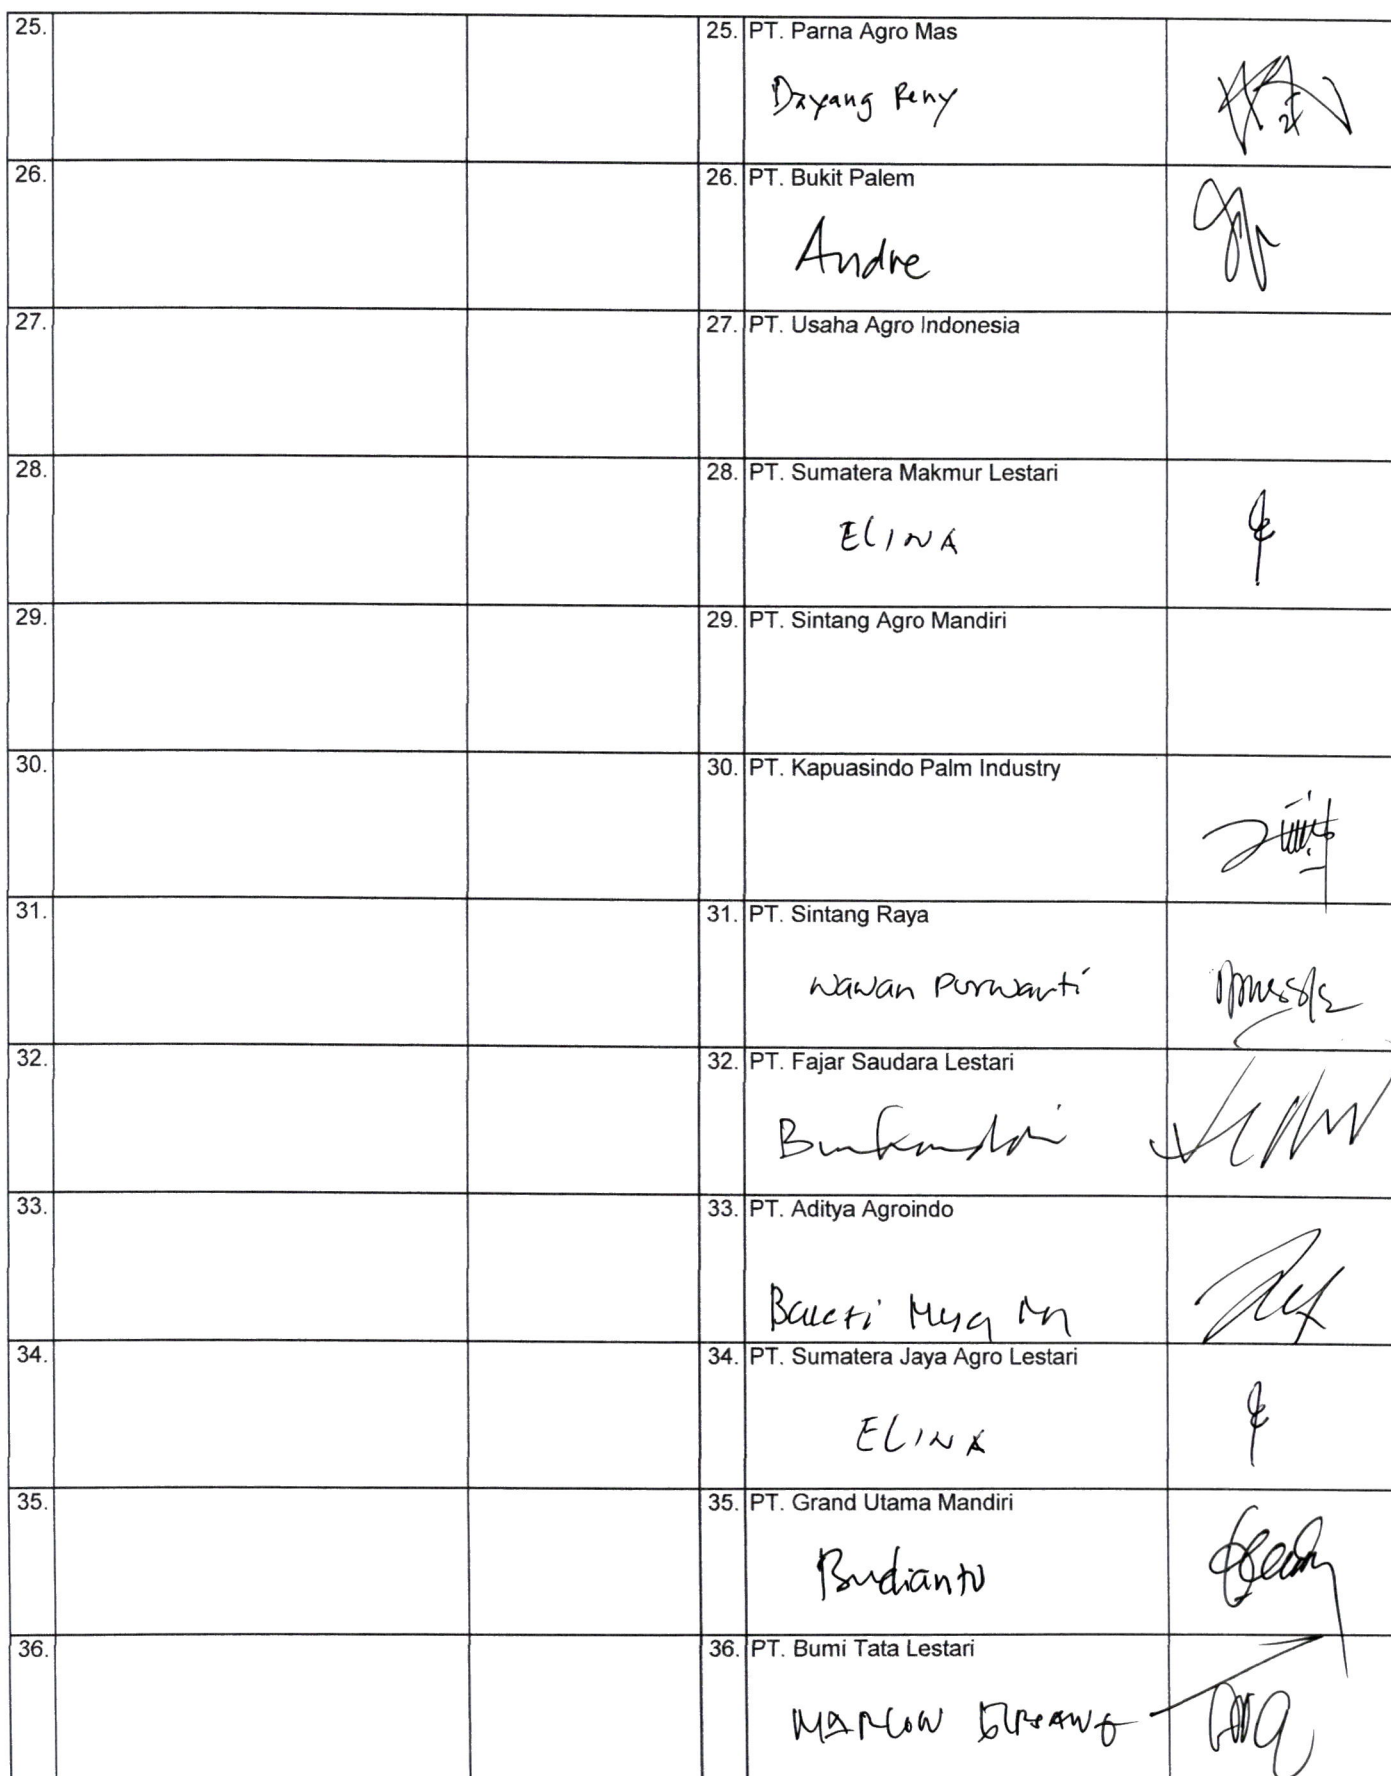 25. 25. PT. Parna Agro Mas
Dayang Reny
26. 26. PT. Bukit Palem
Andre
27. 27. PT. Usaha Agro Indonesia
28. 28. PT. Sumatera Makmur Lestari
ELINA
29. 29. PT. Sintang Agro Mandiri
30. 30. PT. Kapuasindo Palm Industry
31. 31. PT. Sintang Raya
Wawan Purwanti
32. 32. PT. Fajar Saudara Lestari
33. 33. PT. Aditya Agroindo
34. 34. PT. Sumatera Jaya Agro Lestari
ELINA
35. 35. PT. Grand Utama Mandiri
Budianto
36. 36. PT. Bumi Tata Lestari
MARLON